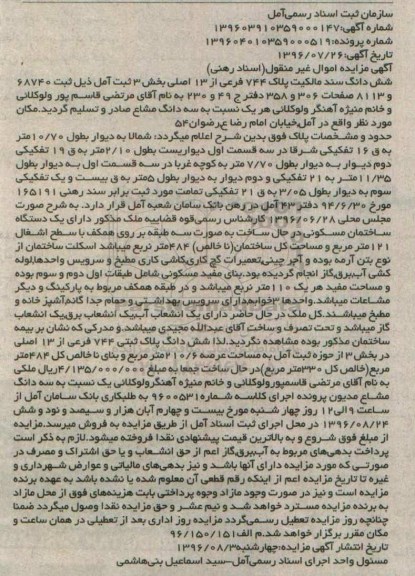 سازمان ثبت اسناد رسمی‌آمل
شماره آگهی:۱۳۹۶۰۳۹۱۰۳۵۹۰۰۰۱۴۷
شماره پرونده:۱۳۹۶۰۴۰۱۰۳۵۹۰۰۰۵۱۹
تاریخ آگهی:۱۳۹۶/۰۷/۲۶
آگهی مزایده اموال غیر منقول(اسناد رهنی)
شش دانگ سند مالکیت پلاک ۷۴۴ فرعی از ۱۳ اصلی بخش ۳ ثبت آمل ذیل ثبت ۶۸۷۴۰
و ۸۱۱۳ صفحات ۳۰۶ و ۳۵۸ دفترج ۴۹ و ۲۳۰ به نام آقای مرتضی قاسم پور ولوکلائی
و خانم منیژه آهنگر ولوکلائی هر یک نسبت به سه دانگ مشاع صادر و تسلیم گردید.مکان
مورد نظر واقع در آمل‌خیابان امام رضا ع‌رضوان۵۴
حدود و مشخصات پلاک فوق بدین شرح اعلام میگردد: شمالا به دیوار بطول ۱۰/۷۰متر
به ق ۱۶ تفکیکی شرقا در سه قسمت اول دیواریست بطول ۲/۱۰متر به ق ۱۹ تفکیکی
دوم دیوار به دیوار بطول ۷/۷۰ متر به کوچه غربا در سه قسمت اول به دیوار بطول
۱۱/۳۵متر به ۲۱ تفکیکی و دوم دیوار به دیوار بطول ۵متر به ق بیست و یک تفکیکی
سوم به دیوار بطول ۳/۰۵ به ق ۲۱ تفکیکی تمامت مورد ثبت برابر سند رهنی ۱۶۵۱۹۱
مورخ ۹۴/۶/۳۰ دفتر ۴۳ آمل در رهن بانک سامان شعبه آمل قرار دارد. به شرح صورت
مجلس محلی ۱۳۹۶/۰۶/۲۸ کارشناس رسمی‌قوه قضاییه ملک مذکور دارای یک دستگاه
ساختمان مسکونی در حال ساخت به صورت سه طبقه بر روی همکف با سطح اشغال
۱۲۱متر مربع و مساحت کل ساختمان(نا خالص) ۴۸۴متر نربع میباشد اسکلت ساختمان از
نوع بتن آرمه بوده و آجر چینی‌تعمیرات گچ کاری‌کاشی کاری مطبخ و سرویس واحدها‌لوله
کشی آب‌برق‌گاز انجام گردیده بود.بنای مفید مسکونی شامل طبقات اول دوم و سوم بوده
و مساحت مفید هر یک ۱۱۰متر نربع میباشد و در طبقه همکف مربوط به پارکینگ و دیگر
مشاعات میباشد.واحدها ۳خوابه‌دارای سرویس بهداشتی و حمام جدا گانه‌آشپز خانه و
مطبخ میباشند.کل ملک در حال حاضر دارای یک انشعاب آب‌یک انشعاب برق‌یک انشعاب
گاز میباشد و تحت تصرف و ساخت آقای عبدالله مجیدی میباشد.و مدرکی که نشان بر بیمه
ساختمان مذکور بوده مشاهده نگردید.لذا شش دانگ پلاک ثبتی ۷۴۴ فرعی از ۱۳ اصلی
در بخش ۳ از حوزه ثبت آمل به مساحت عرصه ۲۱۰/۶متر مربع و بنای نا خالص کل ۴۸۴متر
مربع(خالص کل ۳۳۰متر مربع)در حال ساخت جمعا به مبلغ ۴/۱۳۵/۰۰۰/۰۰۰ریال ملکی
به نام آقای مرتضی قاسمپورولوکلائی و خانم منیژه آهنگرولوکلائی یک نسبت به سه دانگ
مشاع مدیون پرونده اجرای کلاسه شماره۹۶۰۰۵۳۱ به طلبکاری بانک سامان آمل از
ساعت ۹ الی۱۲ روز چهار شنبه مورخ بیست و چهارم آبان هزار و سیصد و نود و شش
۱۳۹۶/۰۸/۲۴ در محل اجرای ثبت اسناد آمل از طریق مزایده به فروش میرسد.مزایده
از مبلغ فوق شروع و به بالاترین قیمت پیشنهادی نقدا فروخته میشود.لازم به ذکر است
پرداخت بدهی‌های مربوط به آب‌برق‌گاز اعم از حق انشعاب و یا حق اشتراک و مصرف در
صورتی که مورد مزایده دارای آنها باشد و نیز بدهی‌های مالیاتی و عوارض شهرداری و
غیره تا تاریخ مزایده اعم از اینکه رقم قطعی آن معلوم شده یا نشده باشد به عهده برنده
مزایده است و نیز در صورت وجود مازاد وجوه پرداختی بابت هزینه‌های فوق از محل مازاد
به برنده مزایده مسترد خواهد شد و نیم عشر و حق مزایده نقدا وصول میگردد ضمنا
چنانچه روز مزایده تعطیل رسمی‌گردد مزایده روز اداری بعد از تعطیلی در همان ساعت و
مکان مقرر برگزار خواهد شد.م الف۹۶/۱۵۰/۱۵۱
تاریخ انتشار آگهی مزایده:چهارشنبه۱۳۹۶/۰۸/۳
مسئول واحد اجرای اسناد رسمی‌آمل–سید اسماعیل بنی‌هاشمی